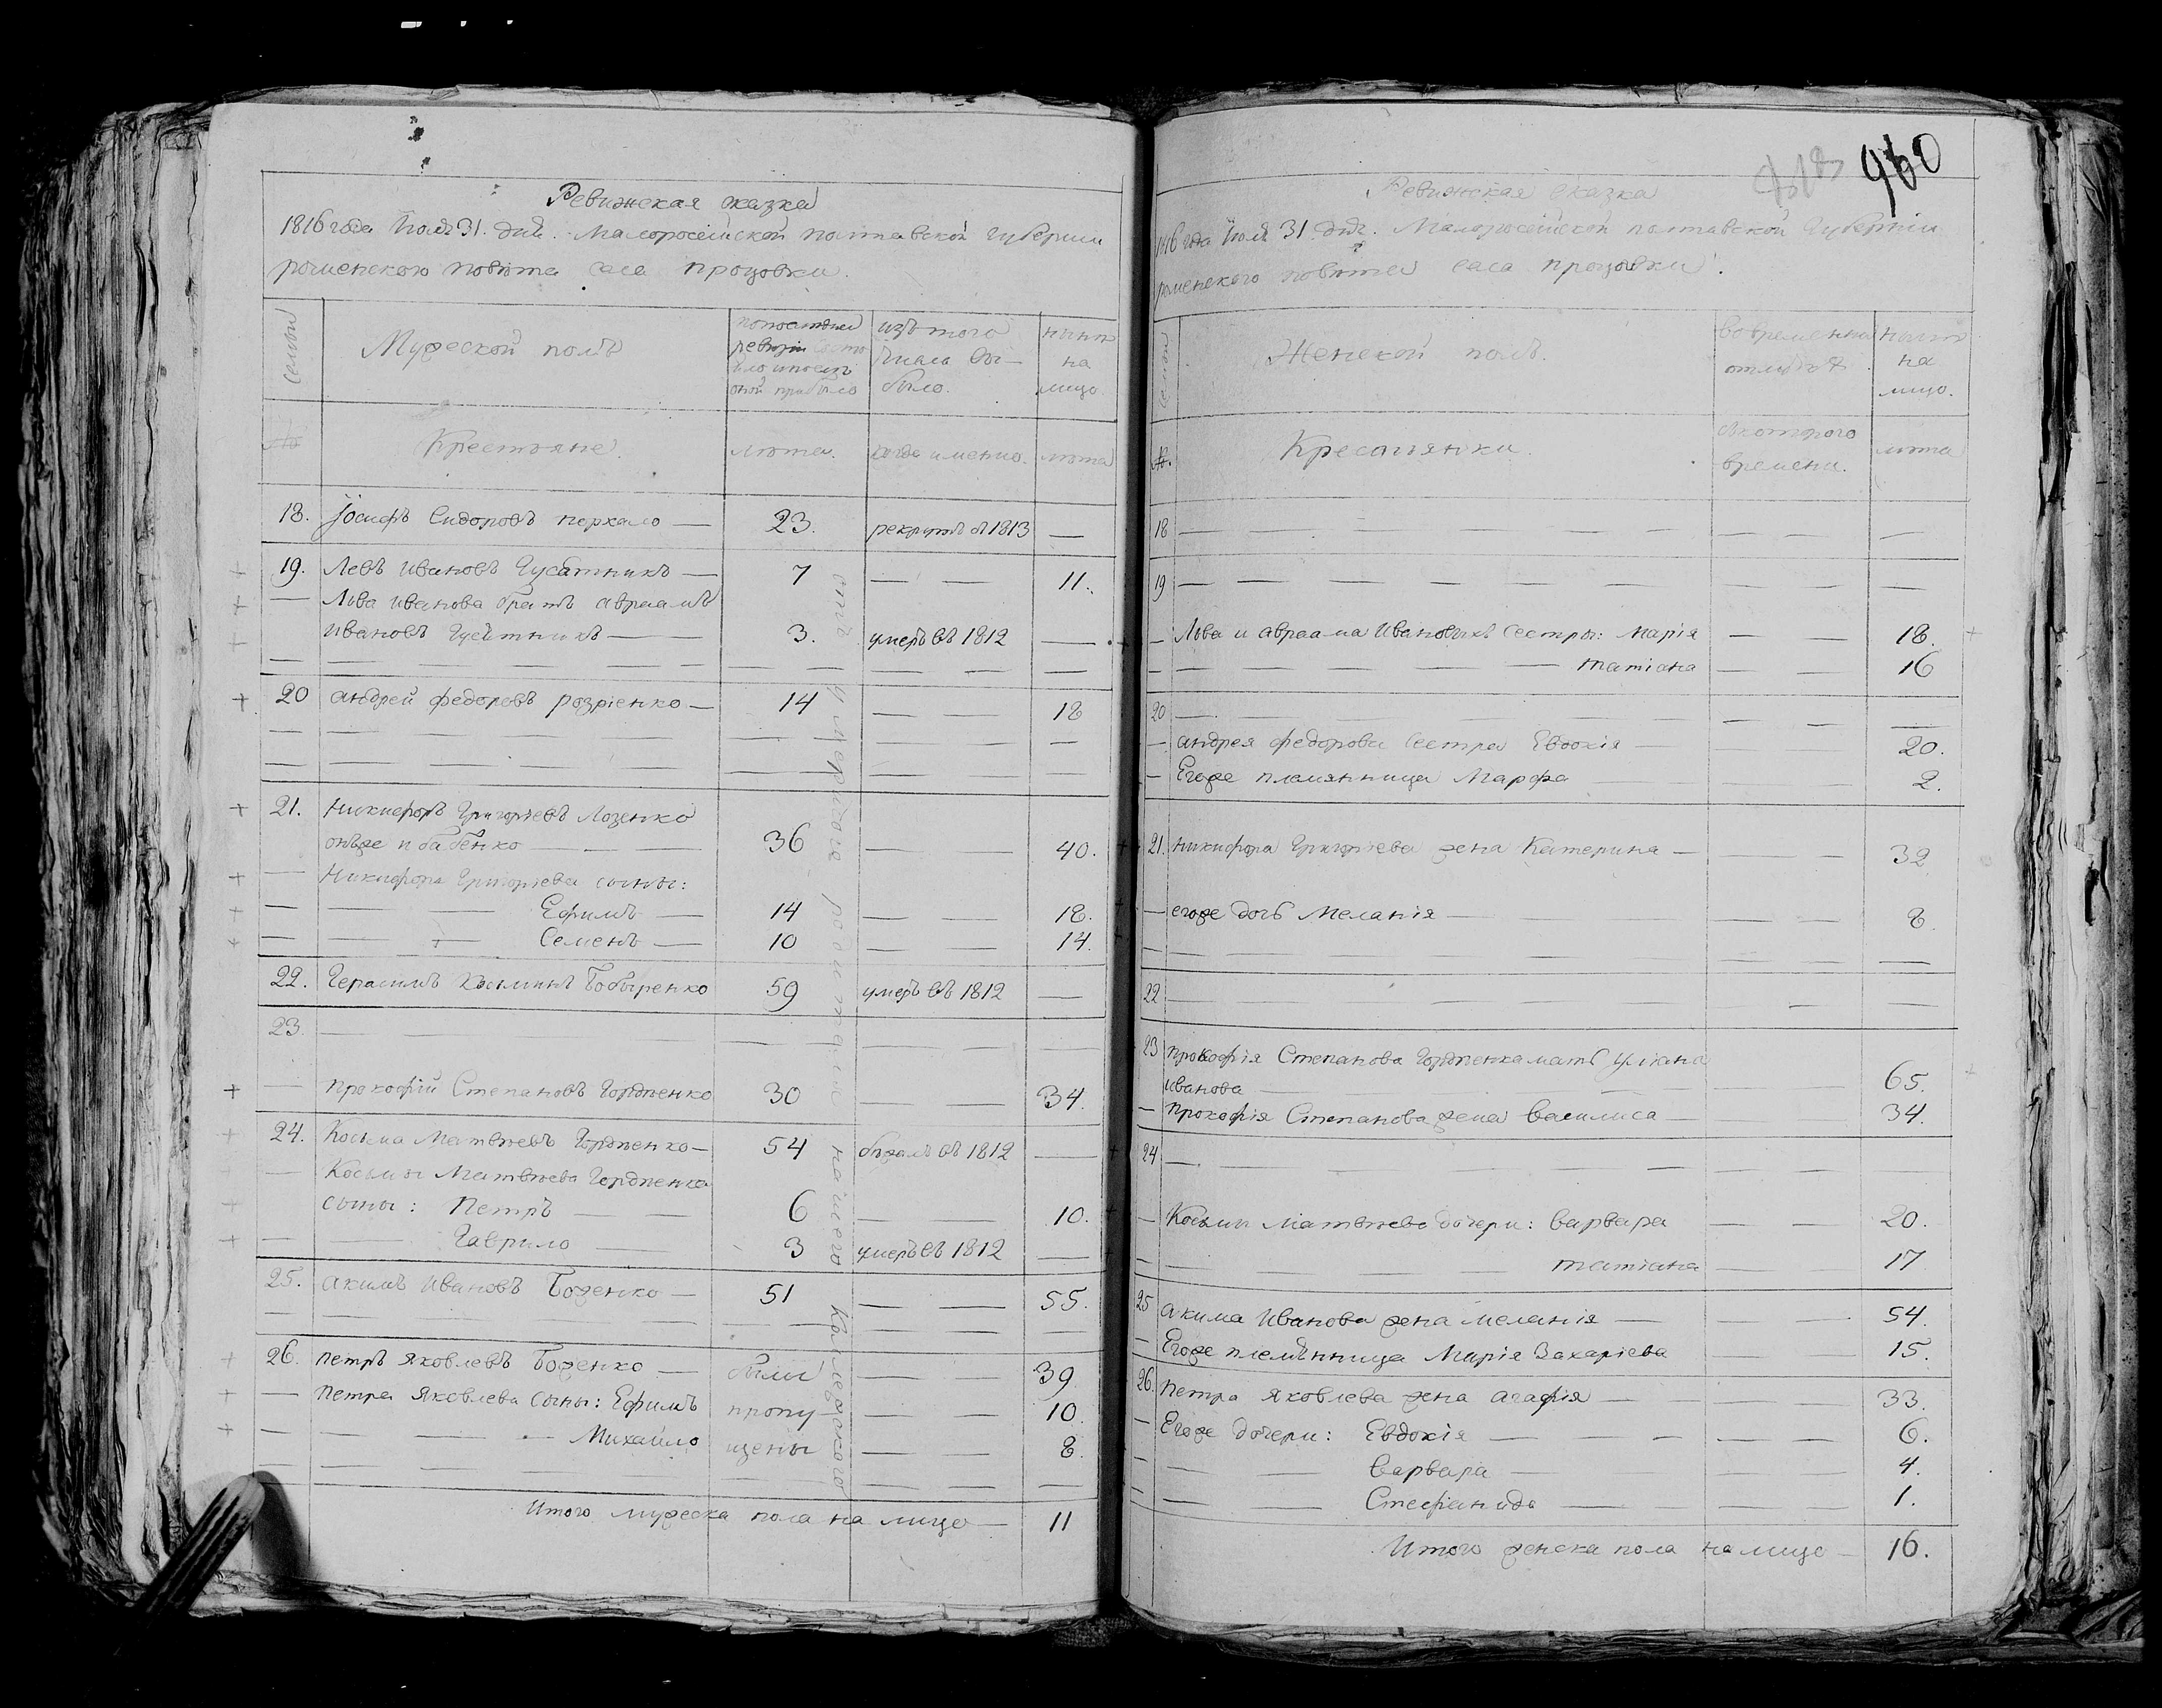 Ревижская сказка
1816 года Июля 31. дня. Малоросейской полтавской Губернии
роменского повѣта села процовки.
семьи
Мужеской полъ
попоследней
ревизіи состо
яло ипослѣ
оной прибыло
изъ того
числа вы-
было.
нынѣ
на
лицо.
№
Крестьяне.
лѣта.
когда именно.
лѣта
18. Іосифъ Сидоровъ перкало — 23. рекрутъ в 1813 —
19. Левъ Ивановъ Гусятникъ — 7 — — 11.
— Льва Иванова братъ авраамъ
Ивановъ Гусятникъ — 3. умеръ въ 1812 —
20 андрей федоровъ розріенко — 14 — — 18
21. Никифоръ Григорьевъ Лозенко
онъже и бабенко — 36 — — 40.
— Никифора Григоріева сыны:
— — Ефимъ — 14 — — 18.
— — Семенъ — 10 — — 14.
22. Герасимъ Козьминъ Бобыренко 59 умеръ въ 1812 —
23. —
— прокофій Степановъ Гордіенко 30 — — 34.
24. Косьма Матвѣевъ Гордіенко — 54 бѣжалъ въ 1812 —
— Косьмы Матвѣева Гордіенка
сыны: Петръ — — 6 — — 10.
— — Гаврило — 3 умеръ въ 1812 —
25. акимъ Ивановъ Боженко — 51 — — 55.
26. петръ яковлевъ Боженко — были — — 39
— петра яковлева сыны: Ефимъ пропу — — 10
— — Михайло щены — — 8.
Итого мужеска пола на лицо — 11
960
Ревижская сказка
1816 года Июля 31 дня. Малоросейской полтавской Губерніи
роменского повѣта села процовки.
семьи
Женской полъ.
вовременной
отлучкѣ
нынѣ
на
лицо.
№.
Крестьянки.
скоторого
времени.
лѣта
18 — — — —
19 — — — —
— Льва и авраама Ивановыхъ сестры: Марія — — 18.
— — татіана — — 16
20 —
— андрея федорова сестра Евдокія — — 20.
— Егоже племянница Марфа — — 2.
21. никифора Григоріева жена Катерина — — — 32
— егоже дочь Меланія — — — 8.
22 —
23 прокофія Степанова Гордіенка мать Уліана
иванова — — — 65.
— прокофія Степанова жена Василиса — — — 34.
24 —
— Косьмы матвѣева дочери: варвара — — 20.
— — татіана — — 17
25 акима Иванова жена меланія — — — 54.
— Егоже племѣнница Марія Захаріева — — 15.
26. петра яковлева жена агафія — — — 33.
— Егоже дочери: Евдокія — — — 6.
— — варвара — — — 4.
— — Стефанида — — — 1.
Итого женска пола на лицо — 16.